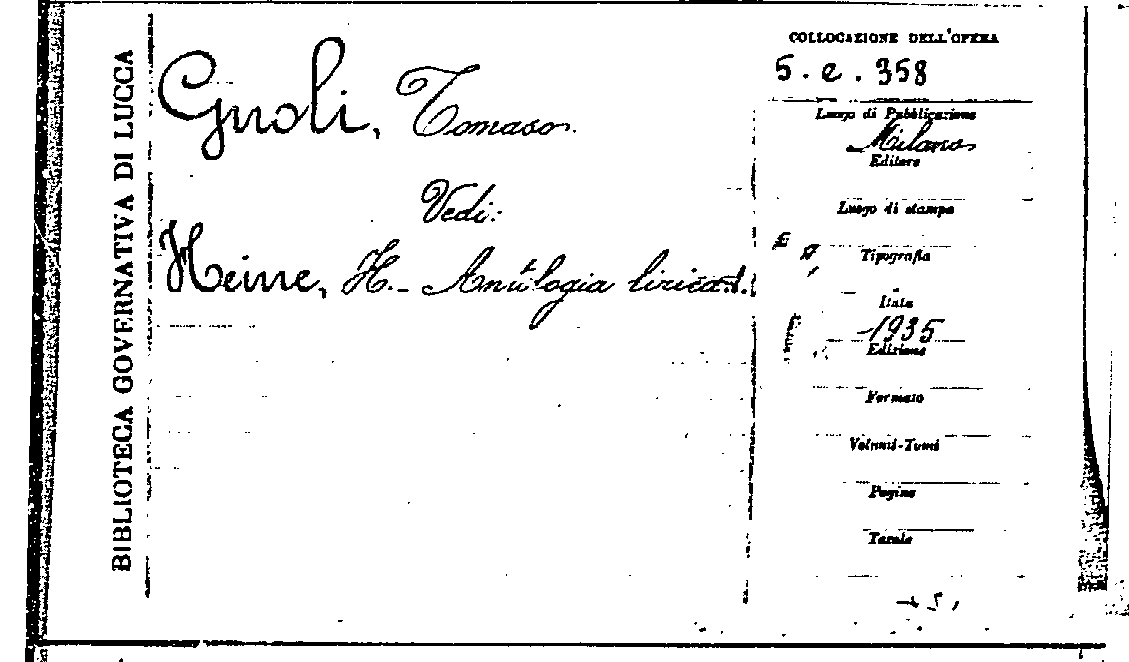 BIBLIOTECA GOVERNATIVA DI LUCCA
Gnoli, Tomaso.
Vedi:
Heine, H. - Antologia lirica.
COLLOCAZIONE DELL'OPERA
5. e. 358
Luogo di Pubblicazione
Milano
Editore
Luogo di stampa
Tipografia
Data
1935
Edizione
Formato
Volumi-Tomi
Pagine
Tavole